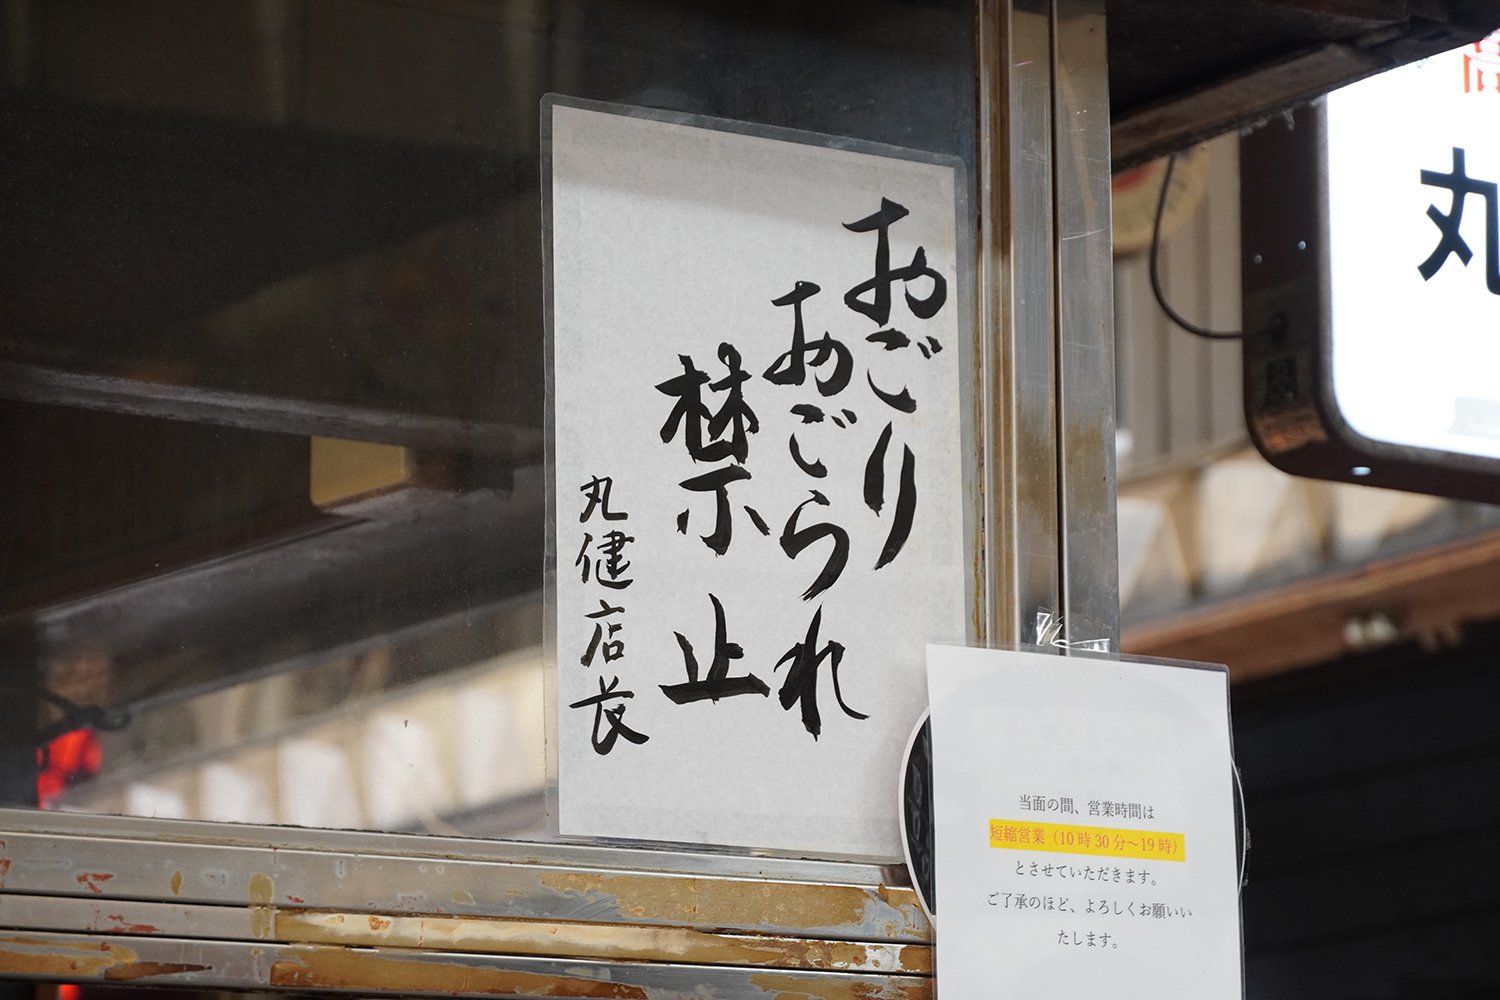 おごり
おごられ
禁止
丸健店長
当面の間、営業時間は
短縮営業（10時30分～19時）
とさせていただきます。
ご了承のほど、よろしくお願いい
たします。
丸